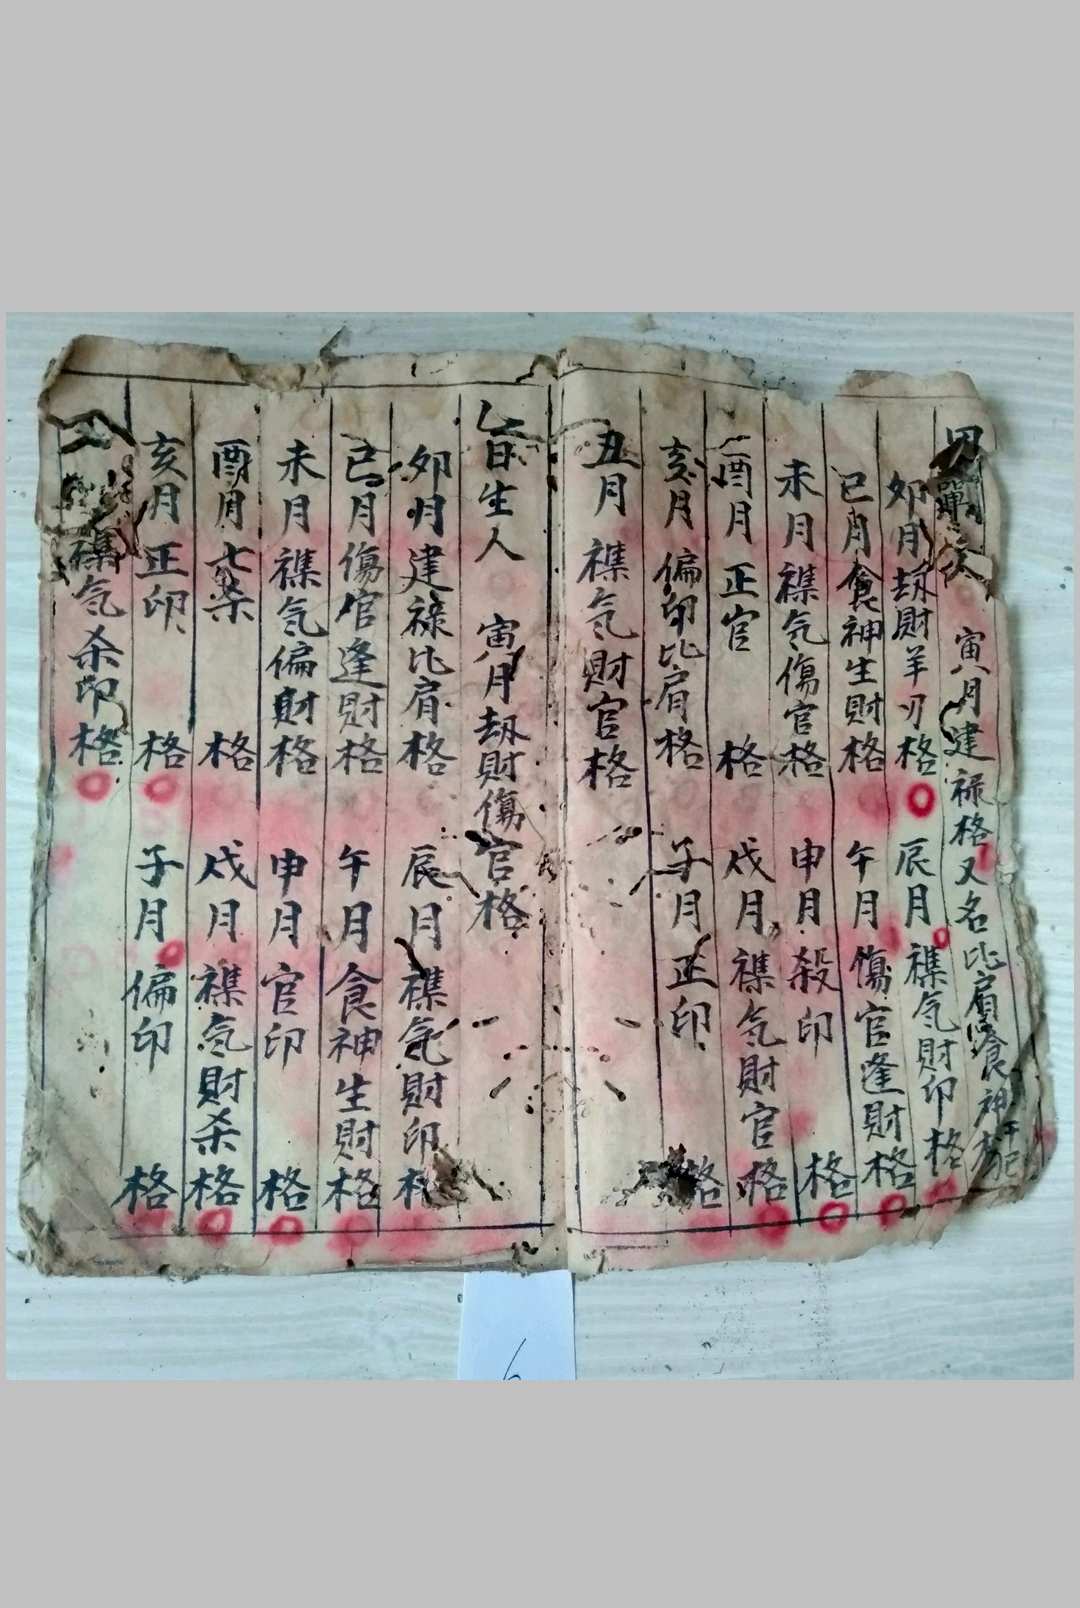 寅月建禄格又名比肩食神格
卯月劫財羊刃格 辰月襍气財印格
巳月食神生財格 午月傷官逢財格
未月襍气傷官格 申月殺印格
酉月正官格 戌月襍气財官格
亥月偏印比肩格 子月正印格
丑月襍气財官格
日生人 寅月劫財傷官格
卯月建禄比肩格 辰月襍気財印
巳月傷官逢財格 午月食神生財格
未月襍气偏財格 申月官印格
酉月七杀格 戌月襍气財杀格
亥月正印格 子月偏印格
襍气杀印格
6